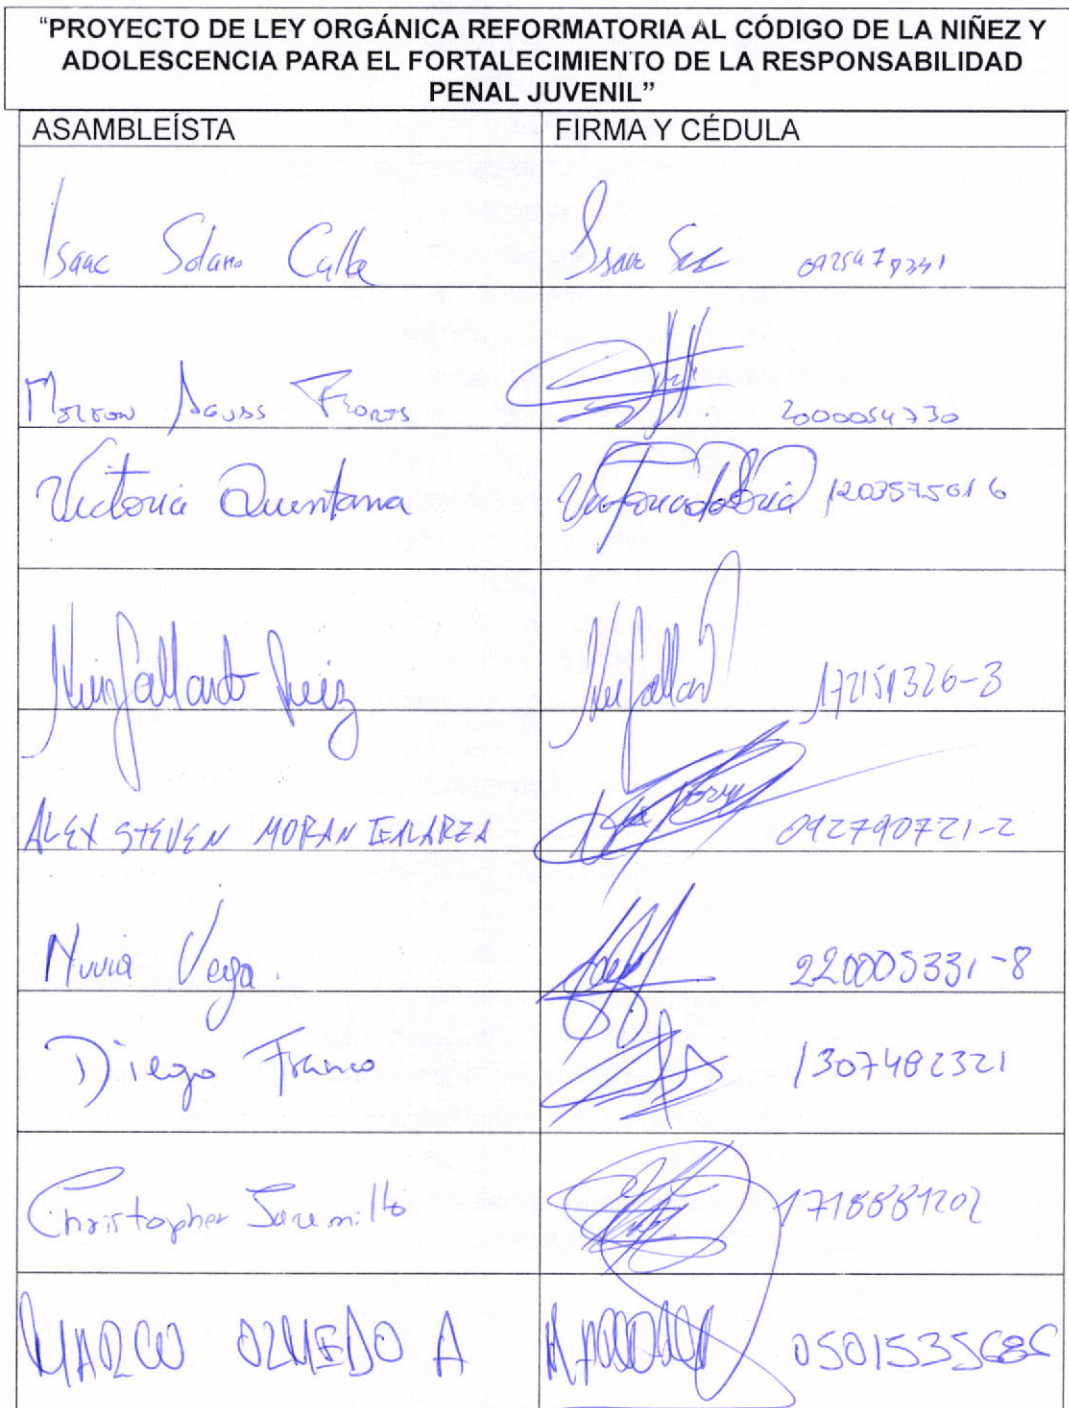 “PROYECTO DE LEY ORGÁNICA REFORMATORIA AL CÓDIGO DE LA NIÑEZ Y
ADOLESCENCIA PARA EL FORTALECIMIENTO DE LA RESPONSABILIDAD
PENAL JUVENIL”
ASAMBLEÍSTA FIRMA Y CÉDULA
Isaac Solano Calle Isaac
2000054730
Victoria Quintana 1203575616
Gallardo 172151326-3
ALEX STEVEN MORAN 092790721-2
Nuvia Vega. 220005331-8
Diego Franco 1307482321
Christopher Jaramillo 1718881202
MARCO OLMEDO A 0501535686